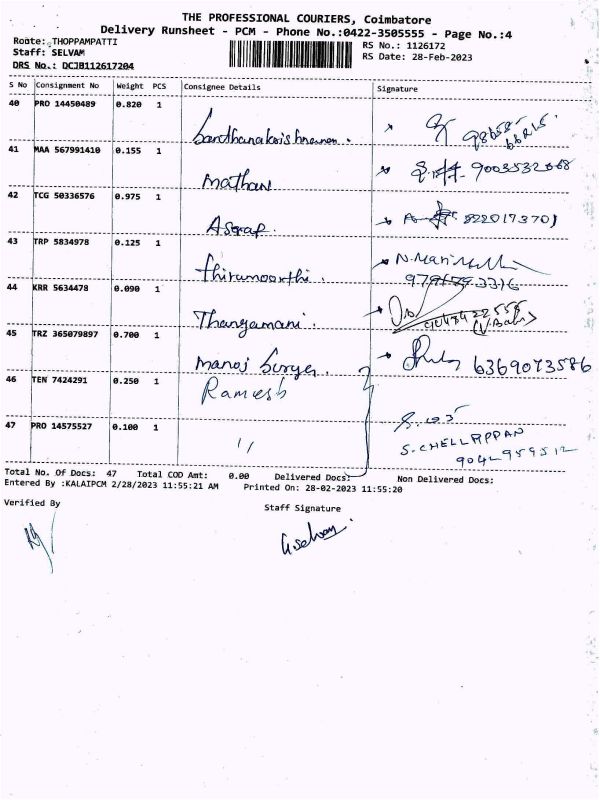 THE PROFESSIONAL COURIERS, Coimbatore
Delivery Runsheet - PCM - Phone No.:0422-3505555 - Page No.:4
Route: THOPPAMPATTI
Staff: SELVAM
DRS No.: DCJB112617204
RS No.: 1126172
RS Date: 28-Feb-2023
S No Consignment No Weight PCS Consignee Details Signature
40 PRO 14450489 0.820 1
41 MAA 567991410 0.155 1
Mathan
42 TCG 50336576 0.975 1
Asrap. 8220173701
43 TRP 5834978 0.125 1
Thiramoorthi.
44 KRR 5634478 0.090 1
Thangamani.
45 TRZ 365079897 0.700 1
Manoj Surya. 6369073586
46 TEN 7424291 0.250 1
Ramesh
47 PRO 14575527 0.100 1
"
S. CHELLAPPAN
9042959512
Total No. Of Docs: 47 Total COD Amt: 0.00 Delivered Docs: Non Delivered Docs:
Entered By :KALAIPCM 2/28/2023 11:55:21 AM Printed On: 28-02-2023 11:55:20
Verified By Staff Signature
G.selvam.